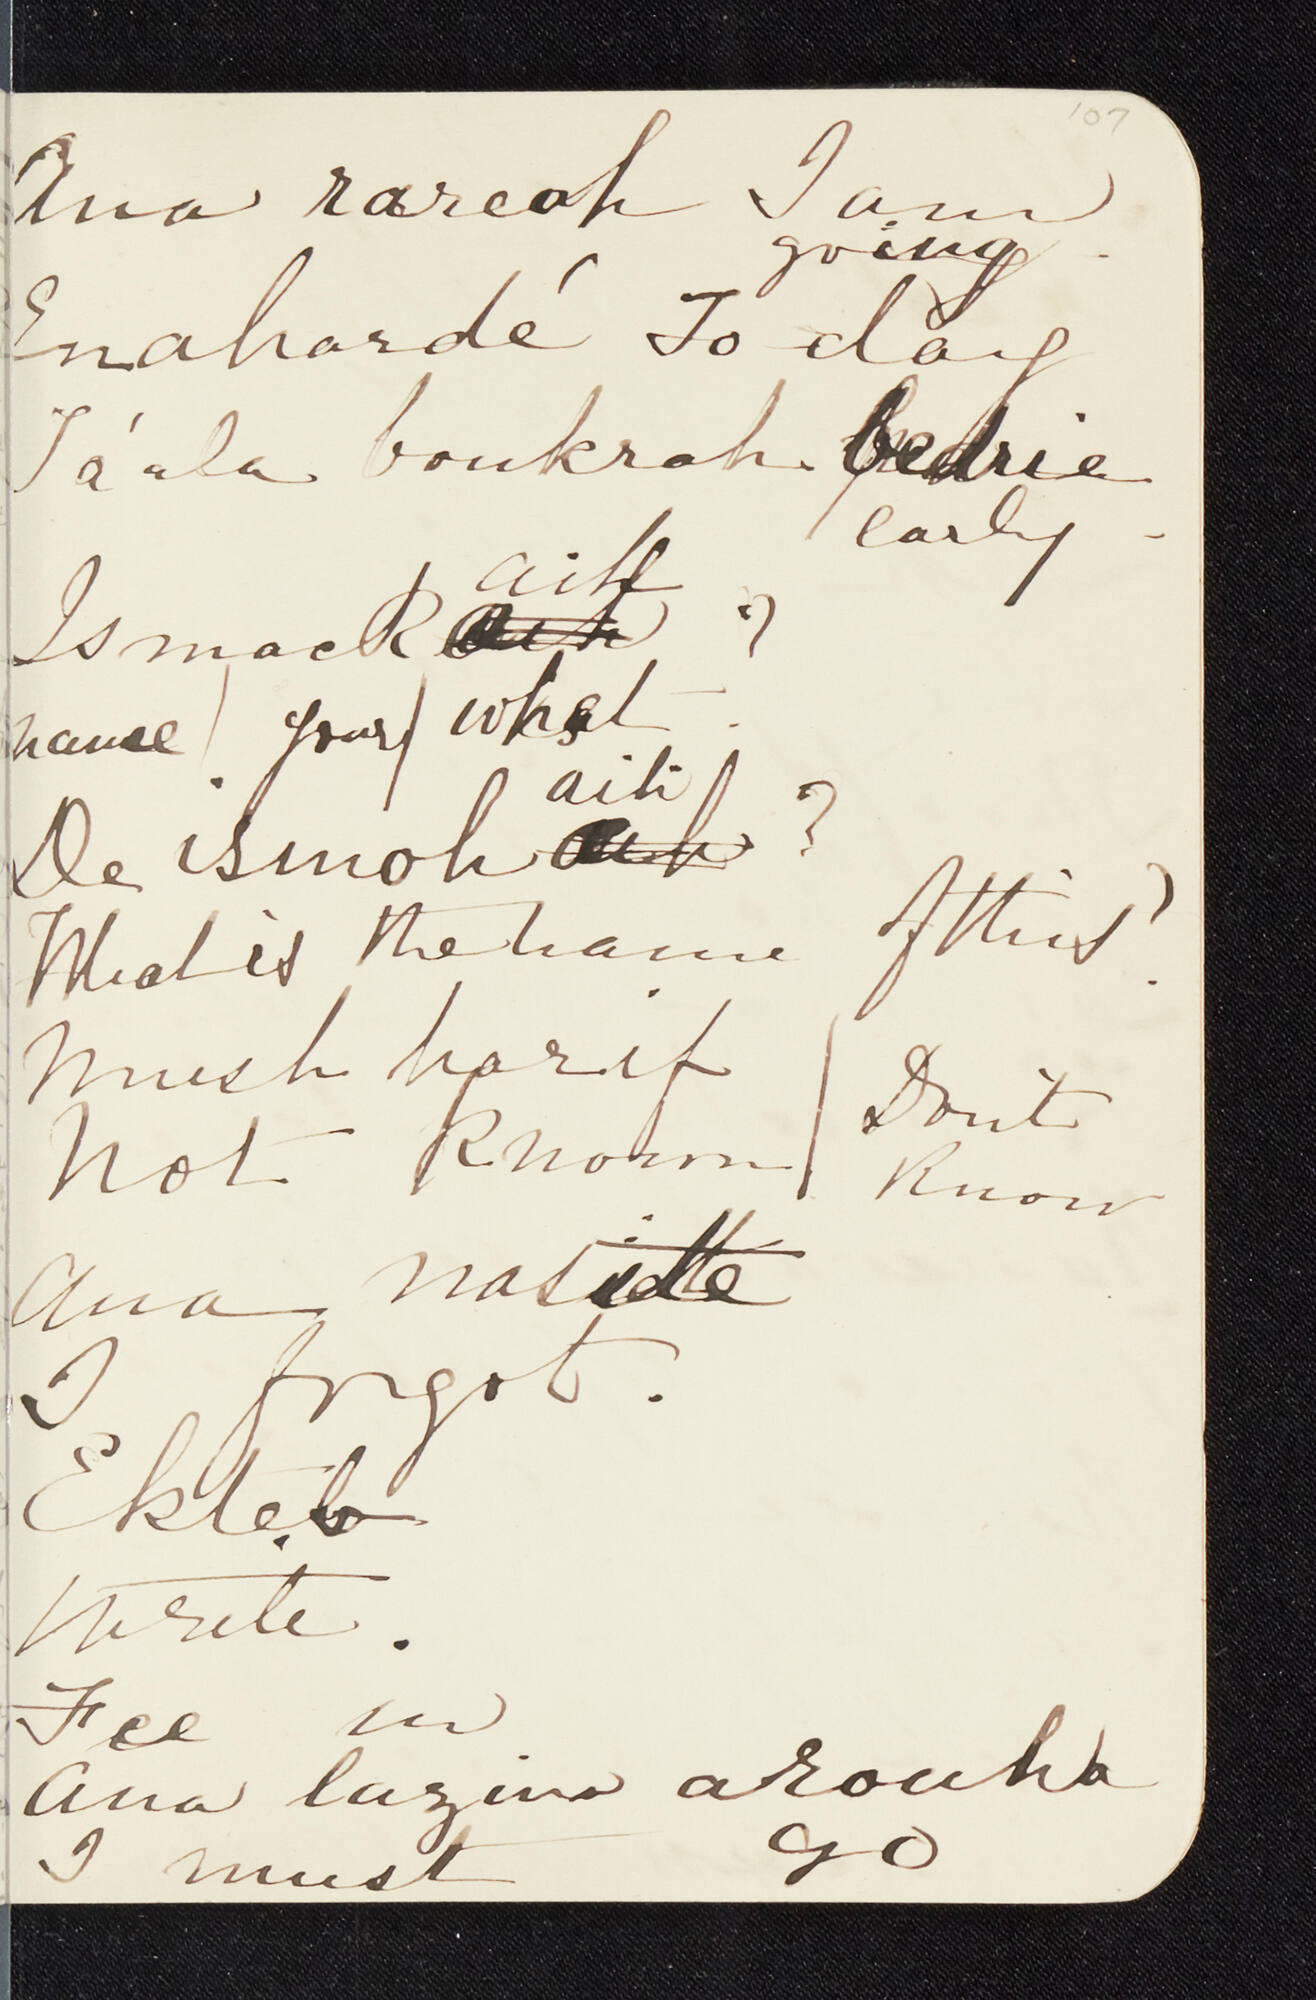 107
Ana rareah I am
going -
Enahardé To day
Tá ala boukrah bedrie
early -
aih
Ismack ?
name / your / what -
aih
De ismoh ?
What is the name of this?
Mush harif / Dont
Not Known / Know
Ana nasitte
I forgot.
Ekteb
Write.
Fee in
Ana lazim arouha
I must go